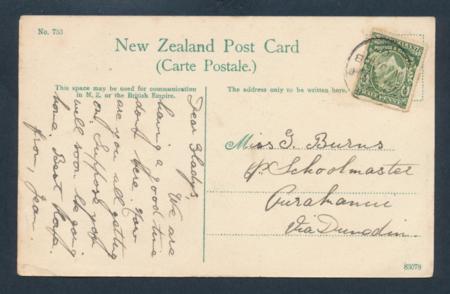 No. 753
New Zealand Post Card
(Carte Postale.)
This space may be used for communication
in N. Z. or the British Empire.
The address only to be written here.
Dear Gladys
We are
having a good time
down here. How
are you all getting
on, Suppose you
will soon be going
home. Best
from, Jean.
Miss G. Burns
Schoolmaster
Via Dunedin
83078